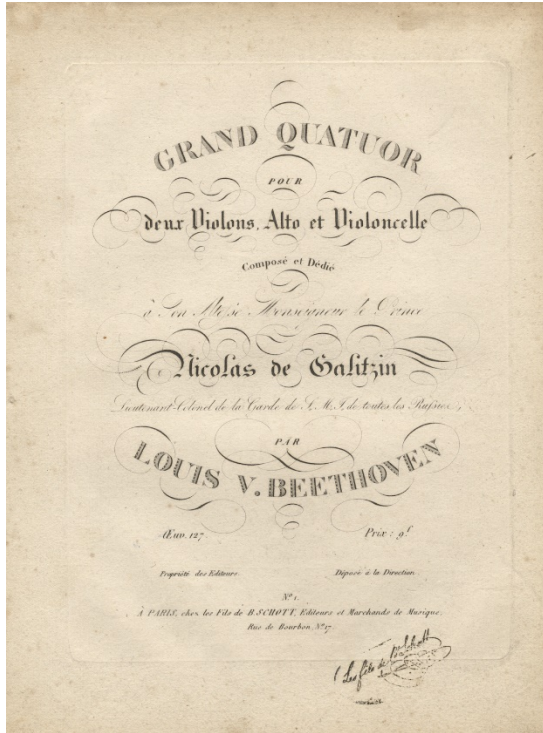 GRAND QUATUOR
POUR
deux Violons, Alto et Violoncelle
Composé et Dédié
à Son Altesse Monseigneur le Prince
Nicolas de Galitzin
Lieutenant-Colonel de la Garde de S. M. I. de toutes les Russies,
PAR
LOUIS V. BEETHOVEN
Œuv. 127. Prix : 9f
Propriété des Editeurs. Déposé à la Direction.
No 1.
A PARIS, chez les Fils de B. SCHOTT, Editeurs et Marchands de Musique,
Rue de Bourbon, No 17.
Les fils de B. Schott